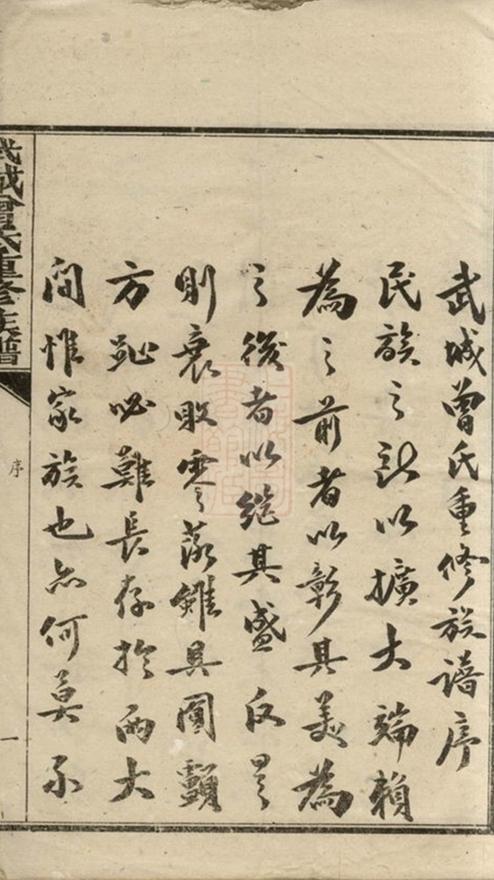 武城曾氏重修族譜序
民族之所以擴大端賴
為之前者以彰其美為
之後者以繼其盛反是
則衰敗零落雖具圓顱
方趾必難長存於兩大
間惟家族也亦何莫不
武城曾氏重修族譜
序
一